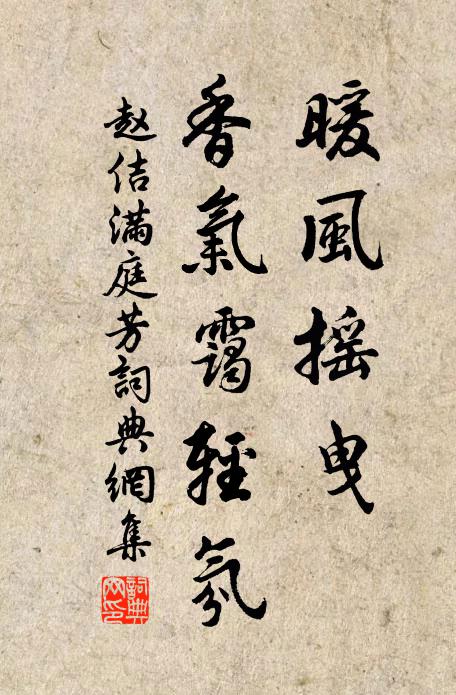 暖風摇曳
香氣靄輕氛
赵佶满庭芳詞典網集
詞典
网印